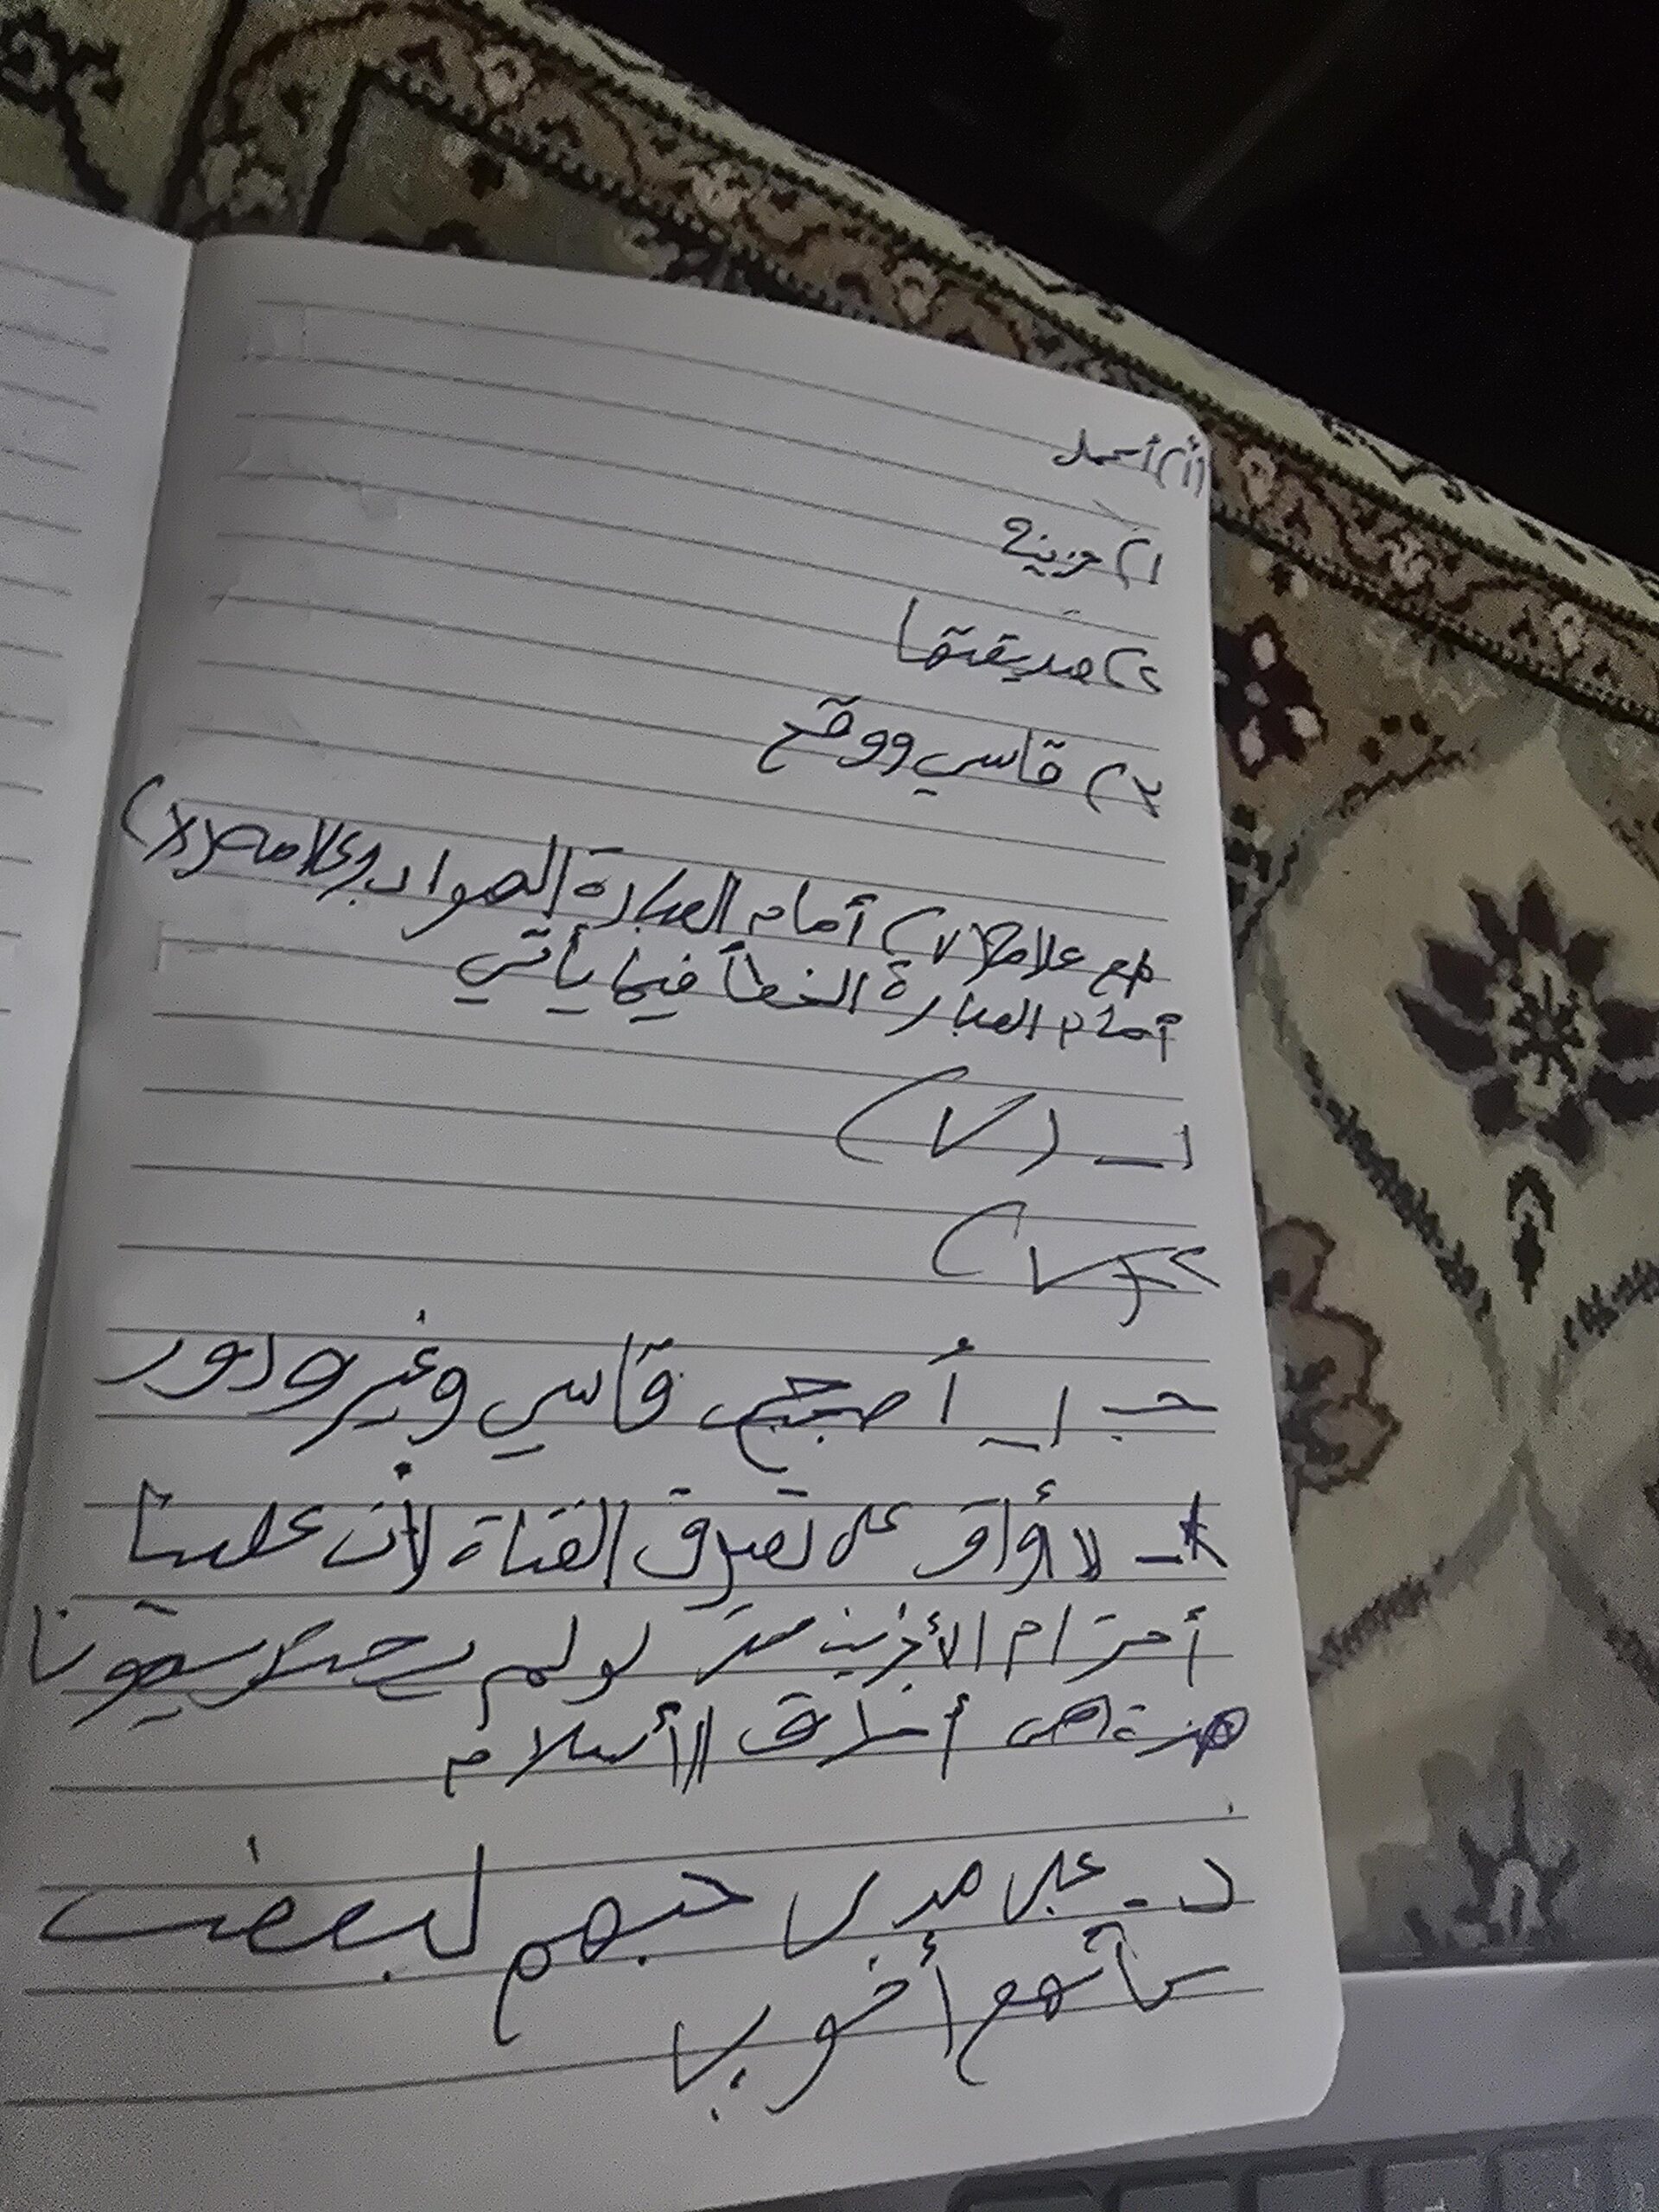 أ) أكمل
١) حزينة
٢) صديقتها
٣) قاسي ووقح
ضع علامة (√) أمام العبارة الصواب وعلامة (x)
أمام العبارة الخطأ فيما يأتي
١ـ (√)
٢ـ (√)
جـ ١ـ أصبح قاسي وغير ودود
٢ـ لا أوافق على تصرف الفتاة لأن علينا
أحترام الأخرين حتى لو لم
هذة هي أخلاق الأسلام
د ـ على مدى حبهم لبعض
كأنهم أخوة